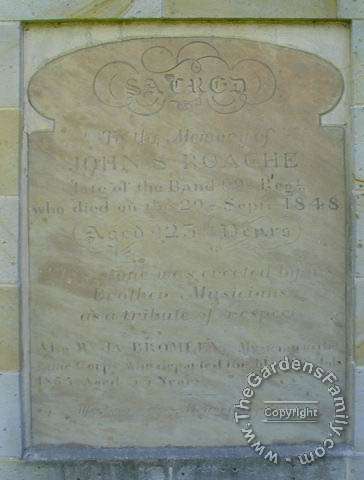 SACRED
To the Memory of
JOHN S ROACHE
late of the Band 99th Regt
who died on the 29th Septr 1848
Aged 23 Years
This stone was erected by his
Brother Musicians
as a tribute of respect
Also Wm JA BROMLEY, Musician in the
same Corps who departed this life
1853 Aged Years
www.TheGardensFamily.com
Copyright